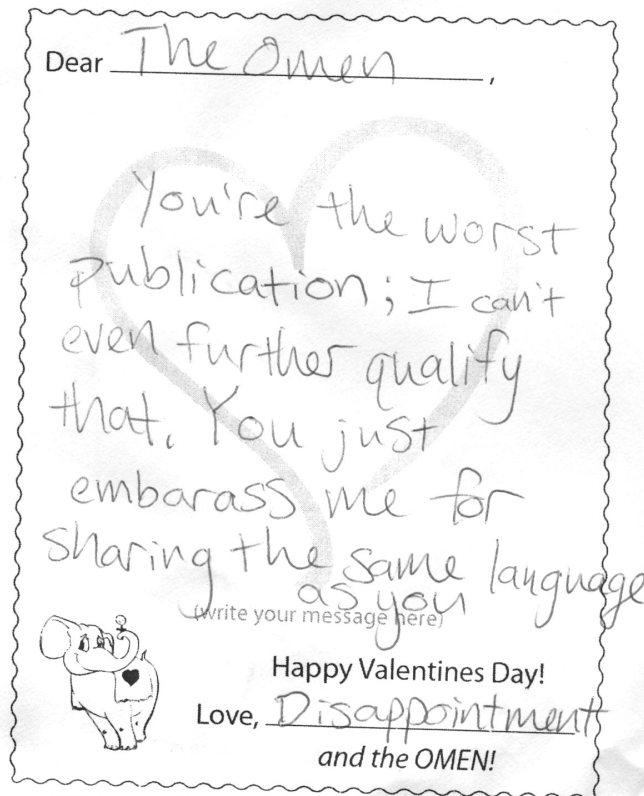 Dear The Omen,
You're the worst
publication; I can't
even further qualify
that. You just
embarass me for
sharing the same language
as you
(write your message here)
Happy Valentines Day!
Love, Disappointment
and the OMEN!